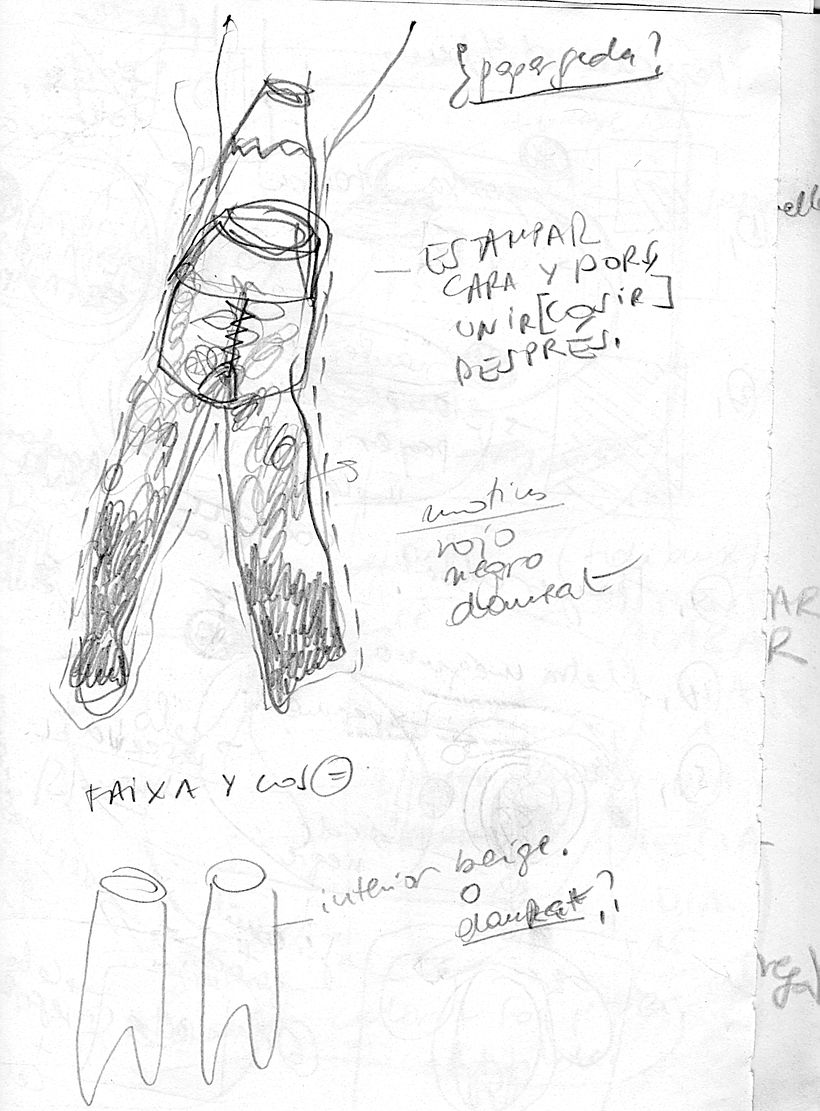 ¿papergada?
ESTAMPAR
CARA Y DORS,
UNIR [COSIR]
DESPRÉS.
motius
rojo
negro
daurat
FAIXA Y COS =
interior beige.
o
daurat?